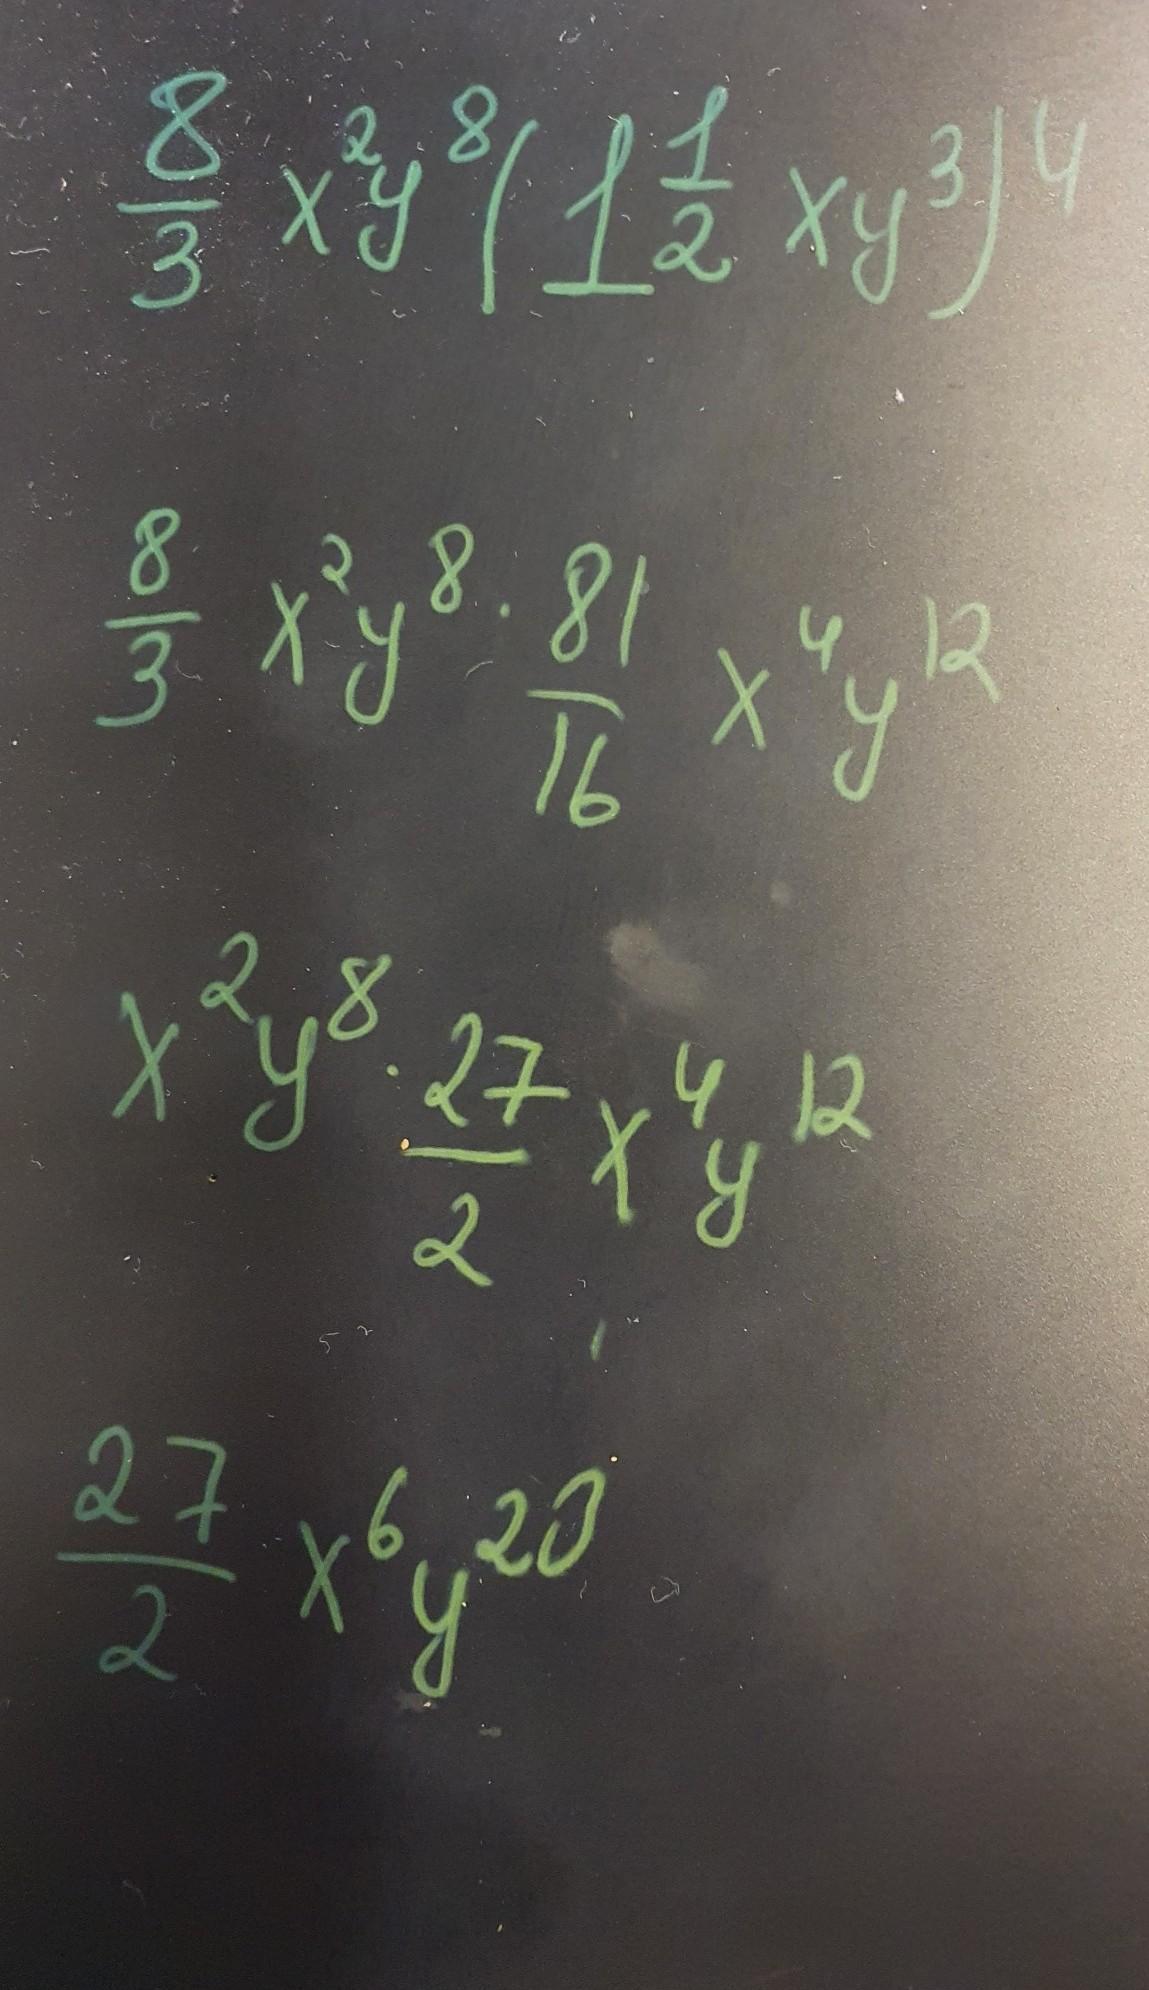 8/3 x²y⁸(1 1/2 xy³)⁴
8/3 x²y⁸ · 81/16 x⁴y¹²
x²y⁸ · 27/2 x⁴y¹²
27/2 x⁶y²⁰